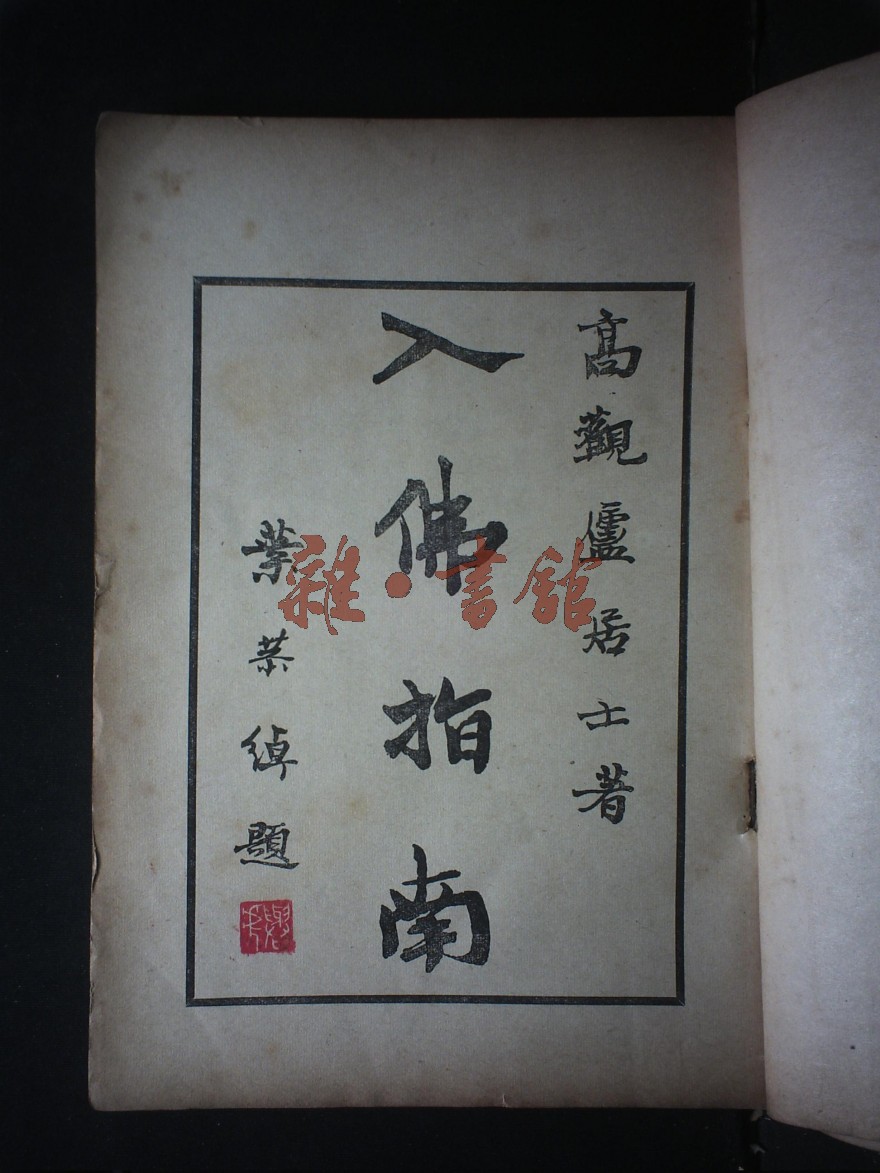 高觀廬居士著
入佛指南
葉恭綽題
雜·書館